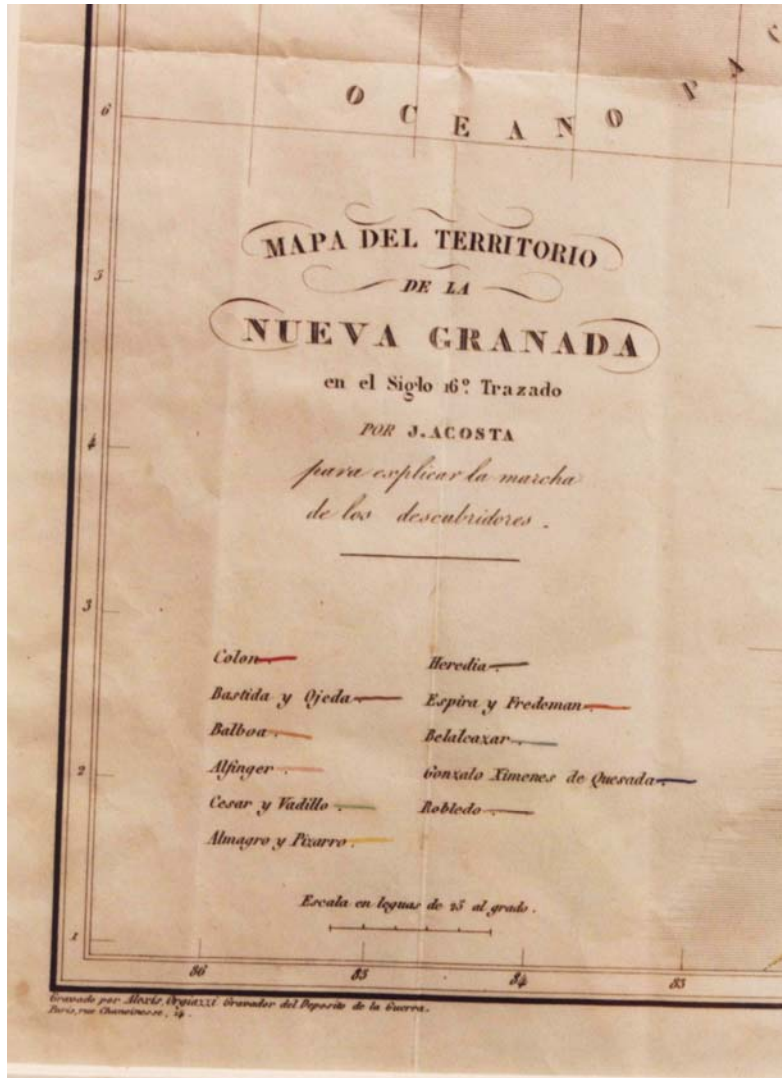 OCEANO PAC
6
MAPA DEL TERRITORIO
5
DE LA
NUEVA GRANADA
en el Siglo 16º. Trazado
4
POR J. ACOSTA
para explicar la marcha
de los descubridores.
3
Colon
Bastida y Ojeda
Balboa
Alfinger
2
Cesar y Vadillo
Almagro y Pizarro
Heredia
Espira y Fredeman
Belalcazar
Gonzalo Ximenes de Quesada
Robledo
Escala en leguas de 25 al grado.
1
86 85 84 83
Gravado por Alexis Orgiazzi Gravador del Deposito de la Guerra.
Paris, rue Chanoinesse, 14.